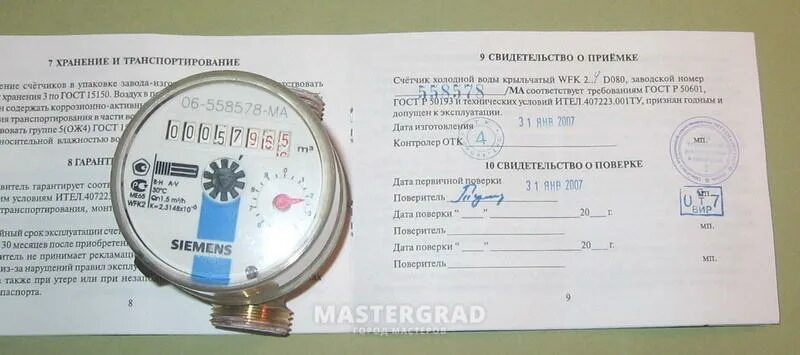 7 ХРАНЕНИЕ И ТРАНСПОРТИРОВАНИЕ
ение счётчиков в упаковке завода-изго
тствовать
хранения 3 по ГОСТ 15150. Воздух в по
н содержать коррозионно-актив
ия транспортирования в части во
вовать группе 5(ОЖ4) ГОСТ 1
носительной влажностью во
8 ГАРАНТ
витель гарантирует соотв
им условиям ИТЕЛ.40722
транспортирования, монт
йный срок эксплуатации счет
30 месяцев после приобретени
тель не принимает рекламаци
из-за нарушений правил эксплу
а также при утере или при незап
паспорта.
8
06-558578-МА
00057965
m³
ME65
WFK2
B-H A-V
30°C
Qn1.5 m³/h
SIEMENS
9 СВИДЕТЕЛЬСТВО О ПРИЁМКЕ
Счётчик холодной воды крыльчатый WFK 2.. D080, заводской номер
558578 /МА соответствует требованиям ГОСТ Р 50601,
ГОСТ Р 50193 и технических условий ИТЕЛ.407223.001ТУ, признан годным и
допущен к эксплуатации.
Дата изготовления 31 ЯНВ 2007
Контролер ОТК 4 МП.
10 СВИДЕТЕЛЬСТВО О ПОВЕРКЕ
Дата первичной поверки 31 ЯНВ 2007
Поверитель МП.
ВИР
Дата поверки "___" ________ 20___г.
Поверитель МП.
Дата поверки "___" ________ 20___г.
Поверитель МП.
9
MASTERGRAD
ГОРОД МАСТЕРОВ